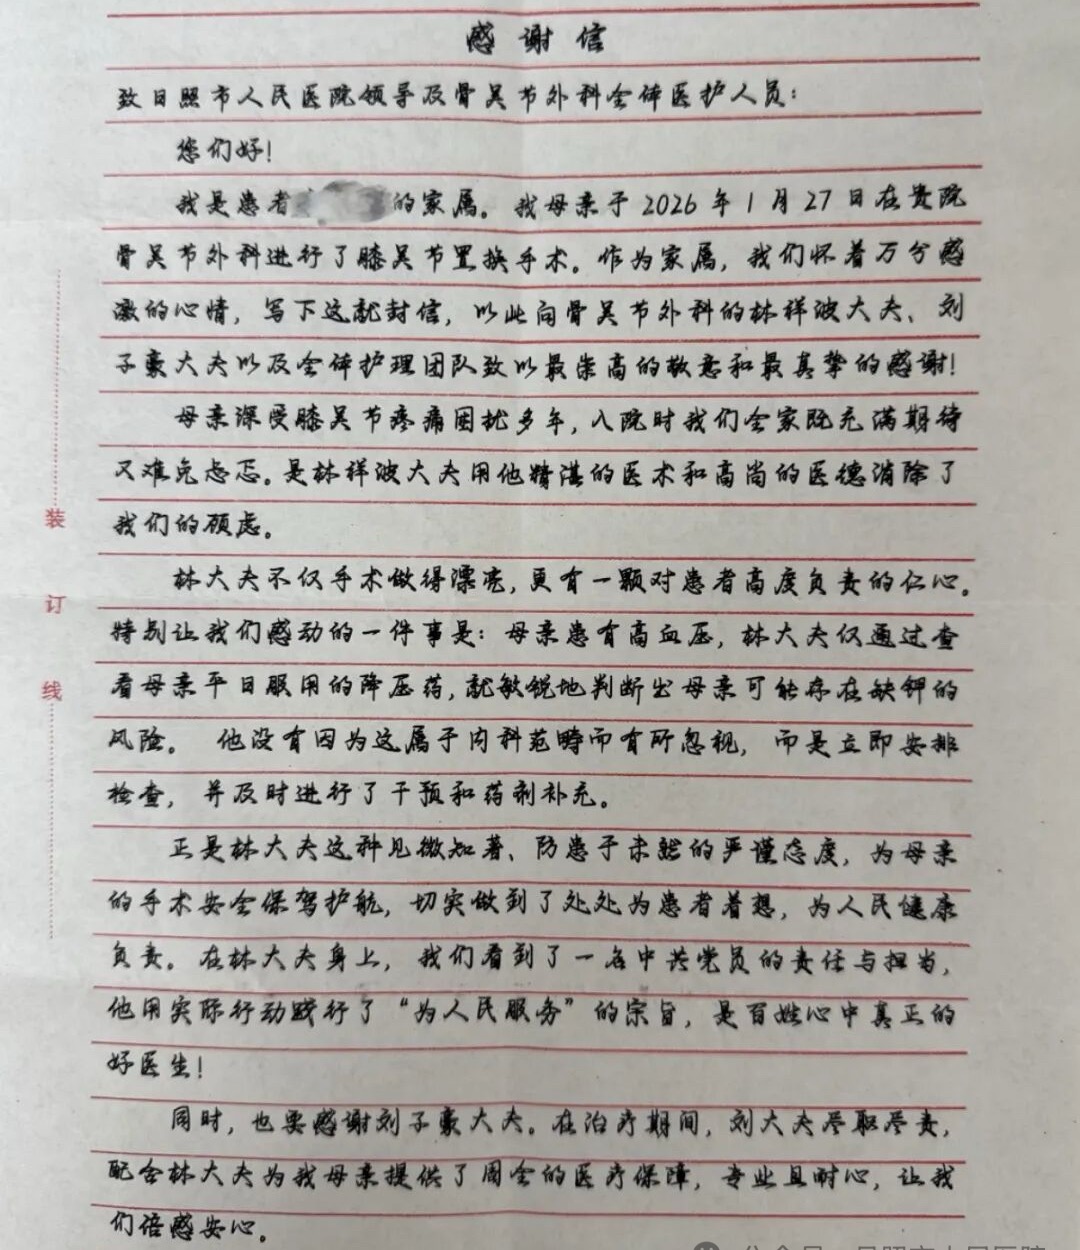 感谢信
致日照市人民医院领导及骨关节外科全体医护人员：
您们好！
我是患者 的家属。我母亲于2026年1月27日在贵院
骨关节外科进行了膝关节置换手术。作为家属，我们怀着万分感
激的心情，写下这就封信，以此向骨关节外科的林祥波大夫、刘
子豪大夫以及全体护理团队致以最崇高的敬意和最真挚的感谢！
母亲深受膝关节疼痛困扰多年，入院时我们全家既充满期待
又难免忐忑。是林祥波大夫用他精湛的医术和高尚的医德消除了
我们的顾虑。
林大夫不仅手术做得漂亮，更有一颗对患者高度负责的仁心。
特别让我们感动的一件事是：母亲患有高血压，林大夫仅通过查
看母亲平日服用的降压药，就敏锐地判断出母亲可能存在缺钾的
风险。他没有因为这属于内科范畴而有所忽视，而是立即安排
检查，并及时进行了干预和药剂补充。
正是林大夫这种见微知著、防患于未然的严谨态度，为母亲
的手术安全保驾护航，切实做到了处处为患者着想，为人民健康
负责。在林大夫身上，我们看到了一名中共党员的责任与担当，
他用实际行动践行了“为人民服务”的宗旨，是百姓心中真正的
好医生！
同时，也要感谢刘子豪大夫。在治疗期间，刘大夫尽职尽责，
配合林大夫为我母亲提供了周全的医疗保障，专业且耐心，让我
们倍感安心。
装
订
线